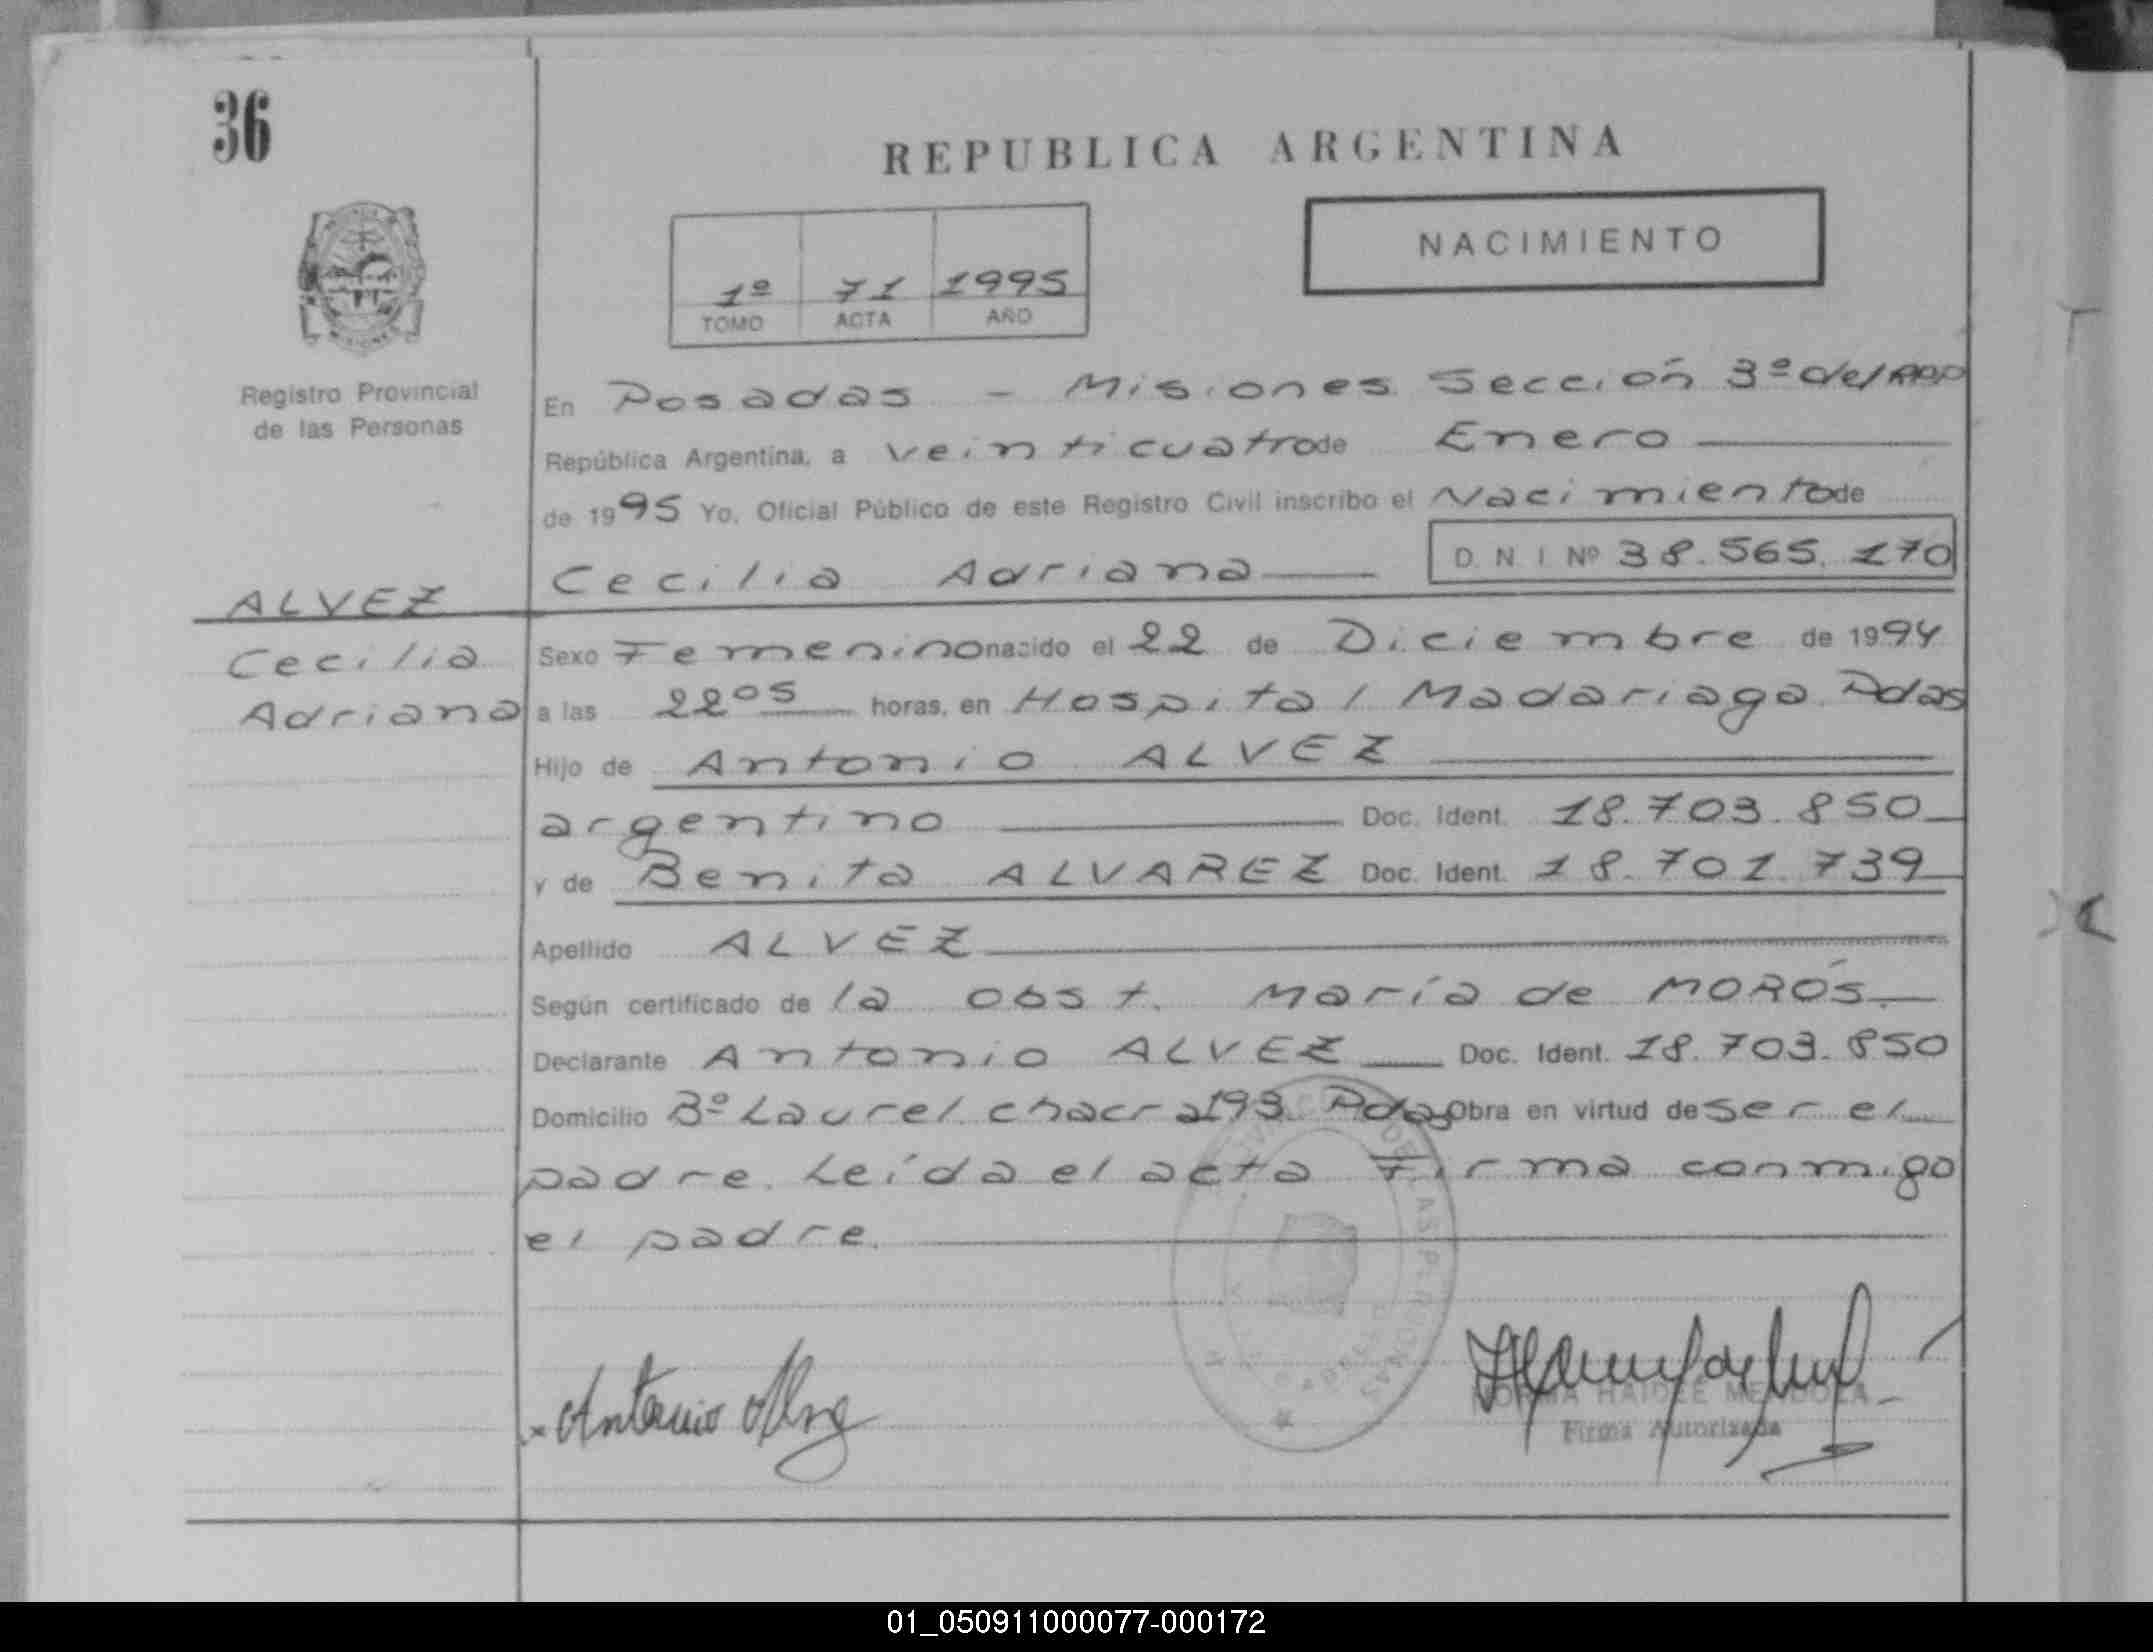 36
REPUBLICA ARGENTINA
NACIMIENTO
1º 71 1995
TOMO ACTA AÑO
Registro Provincial
de las Personas
En Posadas - Misiones Sección 3º del
República Argentina, a veinticuatro de Enero
de 1995 Yo, Oficial Público de este Registro Civil inscribo el Nacimiento de
Cecilia Adriana D. N. I. Nº 38.565.170
ALVEZ
Cecilia
Adriana
Sexo Femenino nacido el 22 de Diciembre de 1994
a las 22 05 horas, en Hospital Madariaga Pdas
Hijo de Antonio ALVEZ
argentino Doc. Ident. 18.703.850
y de Benita ALVAREZ Doc. Ident. 18.701.739
Apellido ALVEZ
Según certificado de la obst. María de MOROS.
Declarante Antonio ALVEZ Doc. Ident. 18.703.850
Domicilio Bº Laurel chacra 193 Pdas Obra en virtud de ser el
padre. Leída el acta Firma conmigo
el padre.
Antonio Alvez
NORMA HAIDEE MENDOZA
Firma Autorizada
01_050911000077-000172